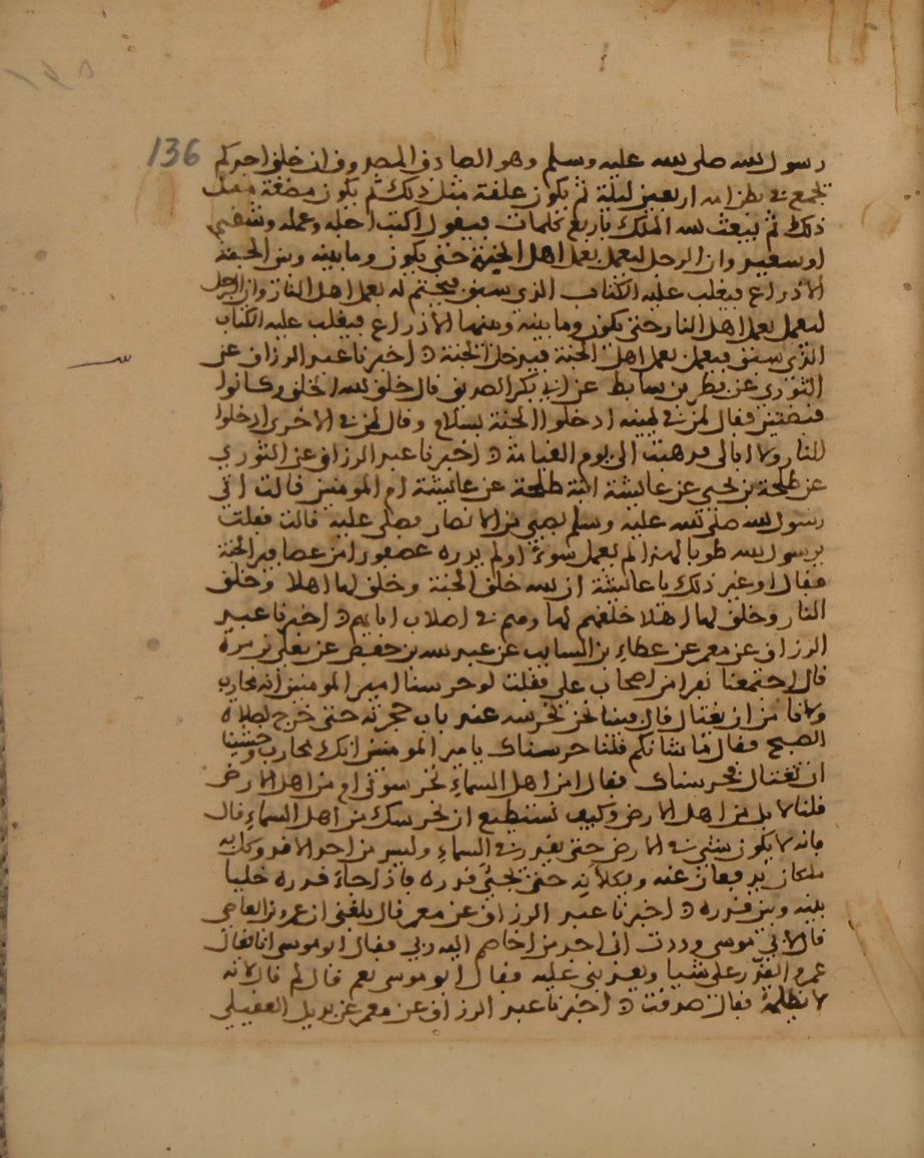 136
رسول الله صلى الله عليه وسلم وهو الصادق المصدوق ان خلق احدكم
يجمع في بطن امه اربعين ليلة ثم يكون علقة مثل ذلك ثم يكون مضغة مثل
ذلك ثم يبعث الله الملك باربع كلمات فيقول اكتب اجله وعمله وشقي
او سعيد وان الرجل ليعمل بعمل اهل الجنة حتى يكون وما بينه وبين الجنة
الا ذراع فيغلب عليه الكتاب الذي سبق فيختم له بعمل اهل النار وان الرجل
ليعمل بعمل اهل النار حتى يكون وما بينه وبينها الا ذراع فيغلب عليه الكتاب
الذي سبق فيعمل بعمل اهل الجنة فيدخل الجنة اخبرنا عبد الرزاق عن
الثوري عن فطر بن سابط عن ابي بكر الصديق قال خلق الله الخلق وكانوا
قبضتين فقال لمن في يمينه ادخلوا الجنة بسلام وقال لمن في الاخرى ادخلوا
النار ولا ابالي فذهبت الى يوم القيامة اخبرنا عبد الرزاق عن الثوري
عن طلحة بن يحيى عن عائشة ابنة طلحة عن عائشة ام المومنين قالت اتي
رسول الله صلى الله عليه وسلم بصبي من الانصار فصلى عليه قالت فقلت
يرسول الله طوبا لهذا لم يعمل سوءا ولم يدره عصفور من عصافير الجنة
فقال او غير ذلك يا عائشة ان الله خلق الجنة وخلق لها اهلا وخلق
النار وخلق لها اهلا خلقهم لها وهم في اصلاب ابايهم اخبرنا عبد
الرزاق عن معمر عن عطاء بن السايب عن عبد الله بن حفص عن يعلى بن مرة
قال اجتمعنا نفرا من اصحاب علي فقلت لو حرسنا امير المومنين انه محارب
ولا نامن ان يغتال قال فبينا نحن نحرسه عند باب حجرته حتى خرج لصلاة
الصبح فقال ما شانكم قلنا حرسناك يا مير المومنين انك محارب وخشينا
ان تغتال فحرسناك فقال امن اهل السماء تحرسوني ام من اهل الارض
قلنا لا بل من اهل الارض وكيف نستطيع ان نحرسك من اهل السماء قال
فانه لا يكون شيء في الارض حتى يقدر في السماء وليس من احد الا قد وكل به
ملكان يدفعان عنه ويكلانه حتى يجئ قدره فاذا جاء قدره خليا
بينه وبين قدره اخبرنا عبد الرزاق عن معمر قال بلغني ان عمرو بن العاصي
قال لابي موسى وددت اني احد من اخاصم اليه ربي فقال ابو موسى انا فقال
عمرو ايقدر علي شيا ويعذبني عليه فقال ابو موسى نعم قال لم قال لانه
لا يظلمك فقال صدقت اخبرنا عبد الرزاق عن معمر عن بديل العقيلي